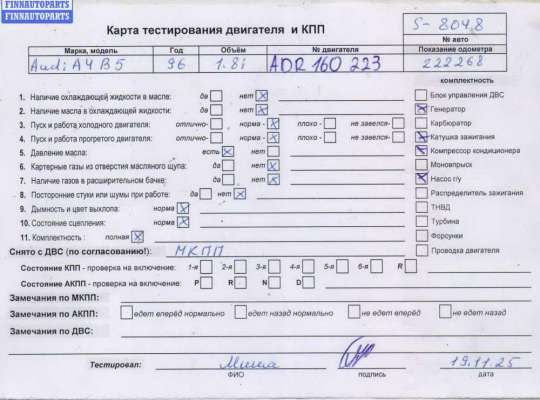 FINNAUTOPARTS
FINNAUTOPARTS
Карта тестирования двигателя и КПП
S-8048
№ авто
Марка, модель Год Объём № двигателя Показание одометра
Audi A4 B5 96 1.8i ADR 160 223 222268
комплектность
1. Наличие охлаждающей жидкости в масле: да нет
Блок управления ДВС
2. Наличие масла в охлаждающей жидкости: да нет
Генератор
3. Пуск и работа холодного двигателя: отлично- норма - плохо - не завелся-
Карбюратор
4. Пуск и работа прогретого двигателя: отлично- норма - плохо - не завелся-
Катушка зажигания
5. Давление масла: есть нет
Компрессор кондиционера
6. Картерные газы из отверстия масляного щупа: да нет
Моновпрыск
7. Наличие газов в расширительном бачке: да нет
Насос г/у
8. Посторонние стуки или шумы при работе: да нет
Распределитель зажигания
9. Дымность и цвет выхлопа: норма
ТНВД
10. Состояние сцепления: норма
Турбина
11. Комплектность : полная
Форсунки
Снято с ДВС (по согласованию!): МКПП
Проводка двигателя
Состояние КПП - проверка на включение: 1-я 2-я 3-я 4-я 5-я 6-я R
Состояние АКПП - проверка на включение: P R N D
Замечания по МКПП:
Замечания по АКПП: едет вперёд нормально едет назад нормально не едет вперёд не едет назад
Замечания по ДВС:
Тестировал: Миша 19.11.25
ФИО подпись дата